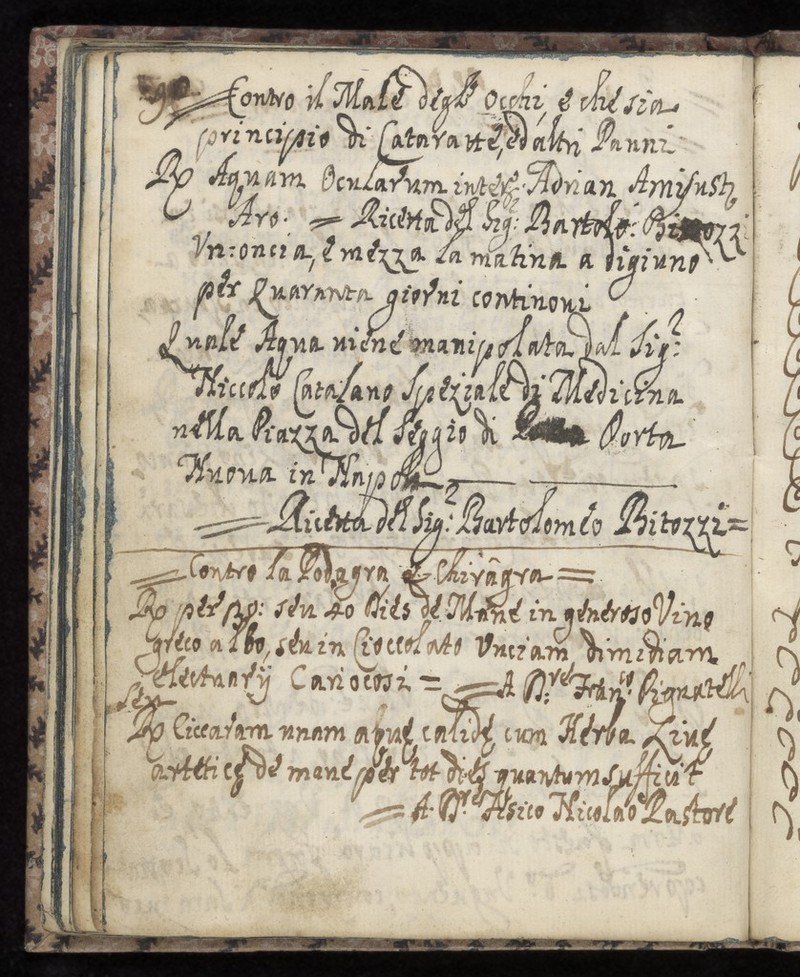 90 Contro il Male degl' Occhi, e che sia
principio di Cataratte, ed altri Panni
Rx Aquam Ocularum inter: Adrian Amisust,
Aro. = Ricetta del Sig:r Bartolo:
Un: oncia, e mezza la matina a digiuno
per Quaranta giorni continovi
Quale Aqua viene manipolata dal Sig:r
Niccolò Catalano Speziale di Medicina
nella Piazza del Seggio di Porta
Nuova in Napoli
= Ricetta del Sig:r Bartolomeo Bitozzi =
= Contro la Podagra, e Chiragra =
Rx per 30: seu 40 Dies de Mane in generoso Vino
greco albo, seu in Cioccolato Unciam dimidiam
electuarij Cariocosi = = A D:re Fran:co Pignatelli
Seu
Rx Ciccaram unam aquę calidę cum Herba Livę
arteticę de mane per tot dies quantum sufficit
= A D:re Nicolao Pastore